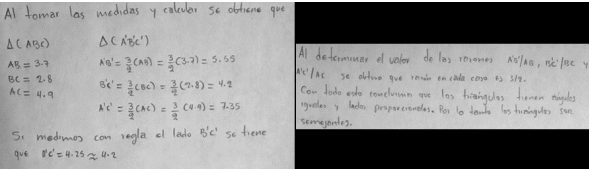 Al tomar las medidas y calcular se obtiene que
Δ(ABC)
Δ(A'B'C')
AB = 3.7
BC = 2.8
AC = 4.9
A'B' = 3/2 (AB) = 3/2 (3.7) = 5.55
B'C' = 3/2 (BC) = 3/2 (2.8) = 4.2
A'C' = 3/2 (AC) = 3/2 (4.9) = 7.35
Si medimos con regla el lado B'C' se tiene
que B'C' = 4.25 ≈ 4.2
Al determinar el valor de las razones A'B'/AB, B'C'/BC y
A'C'/AC se obtuvo que razón en cada caso es 3/2.
Con todo esto concluimos que los triángulos tienen ángulos
iguales y lados proporcionales. Por lo tanto los triángulos son
semejantes.